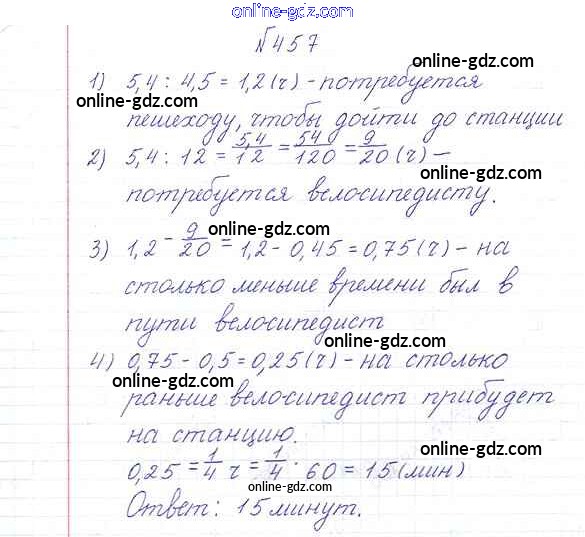 online-gdz.com
№457
1) 5,4 : 4,5 = 1,2 (ч) - потребуется
online-gdz.com
online-gdz.com
пешеходу, чтобы дойти до станции
2) 5,4 : 12 = 5,4/12 = 54/120 = 9/20 (ч) –
online-gdz.com
потребуется велосипедисту.
online-gdz.com
3) 1,2 - 9/20 = 1,2 - 0,45 = 0,75 (ч) – на
online-gdz.com
столько меньше времени был в
online-gdz.com
пути велосипедист
online-gdz.com
4) 0,75 - 0,5 = 0,25 (ч) – на столько
online-gdz.com
раньше велосипедист прибудет
на станцию.
online-gdz.com
0,25 = 1/4 ч = 1/4 · 60 = 15 (мин)
online-gdz.com
Ответ: 15 минут.